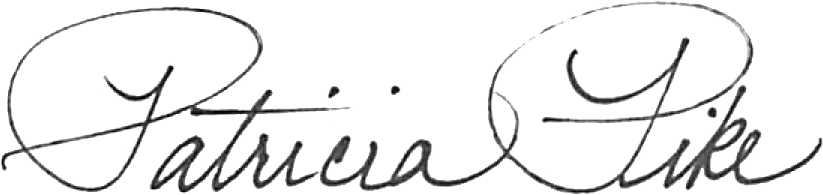 Patricia Pike